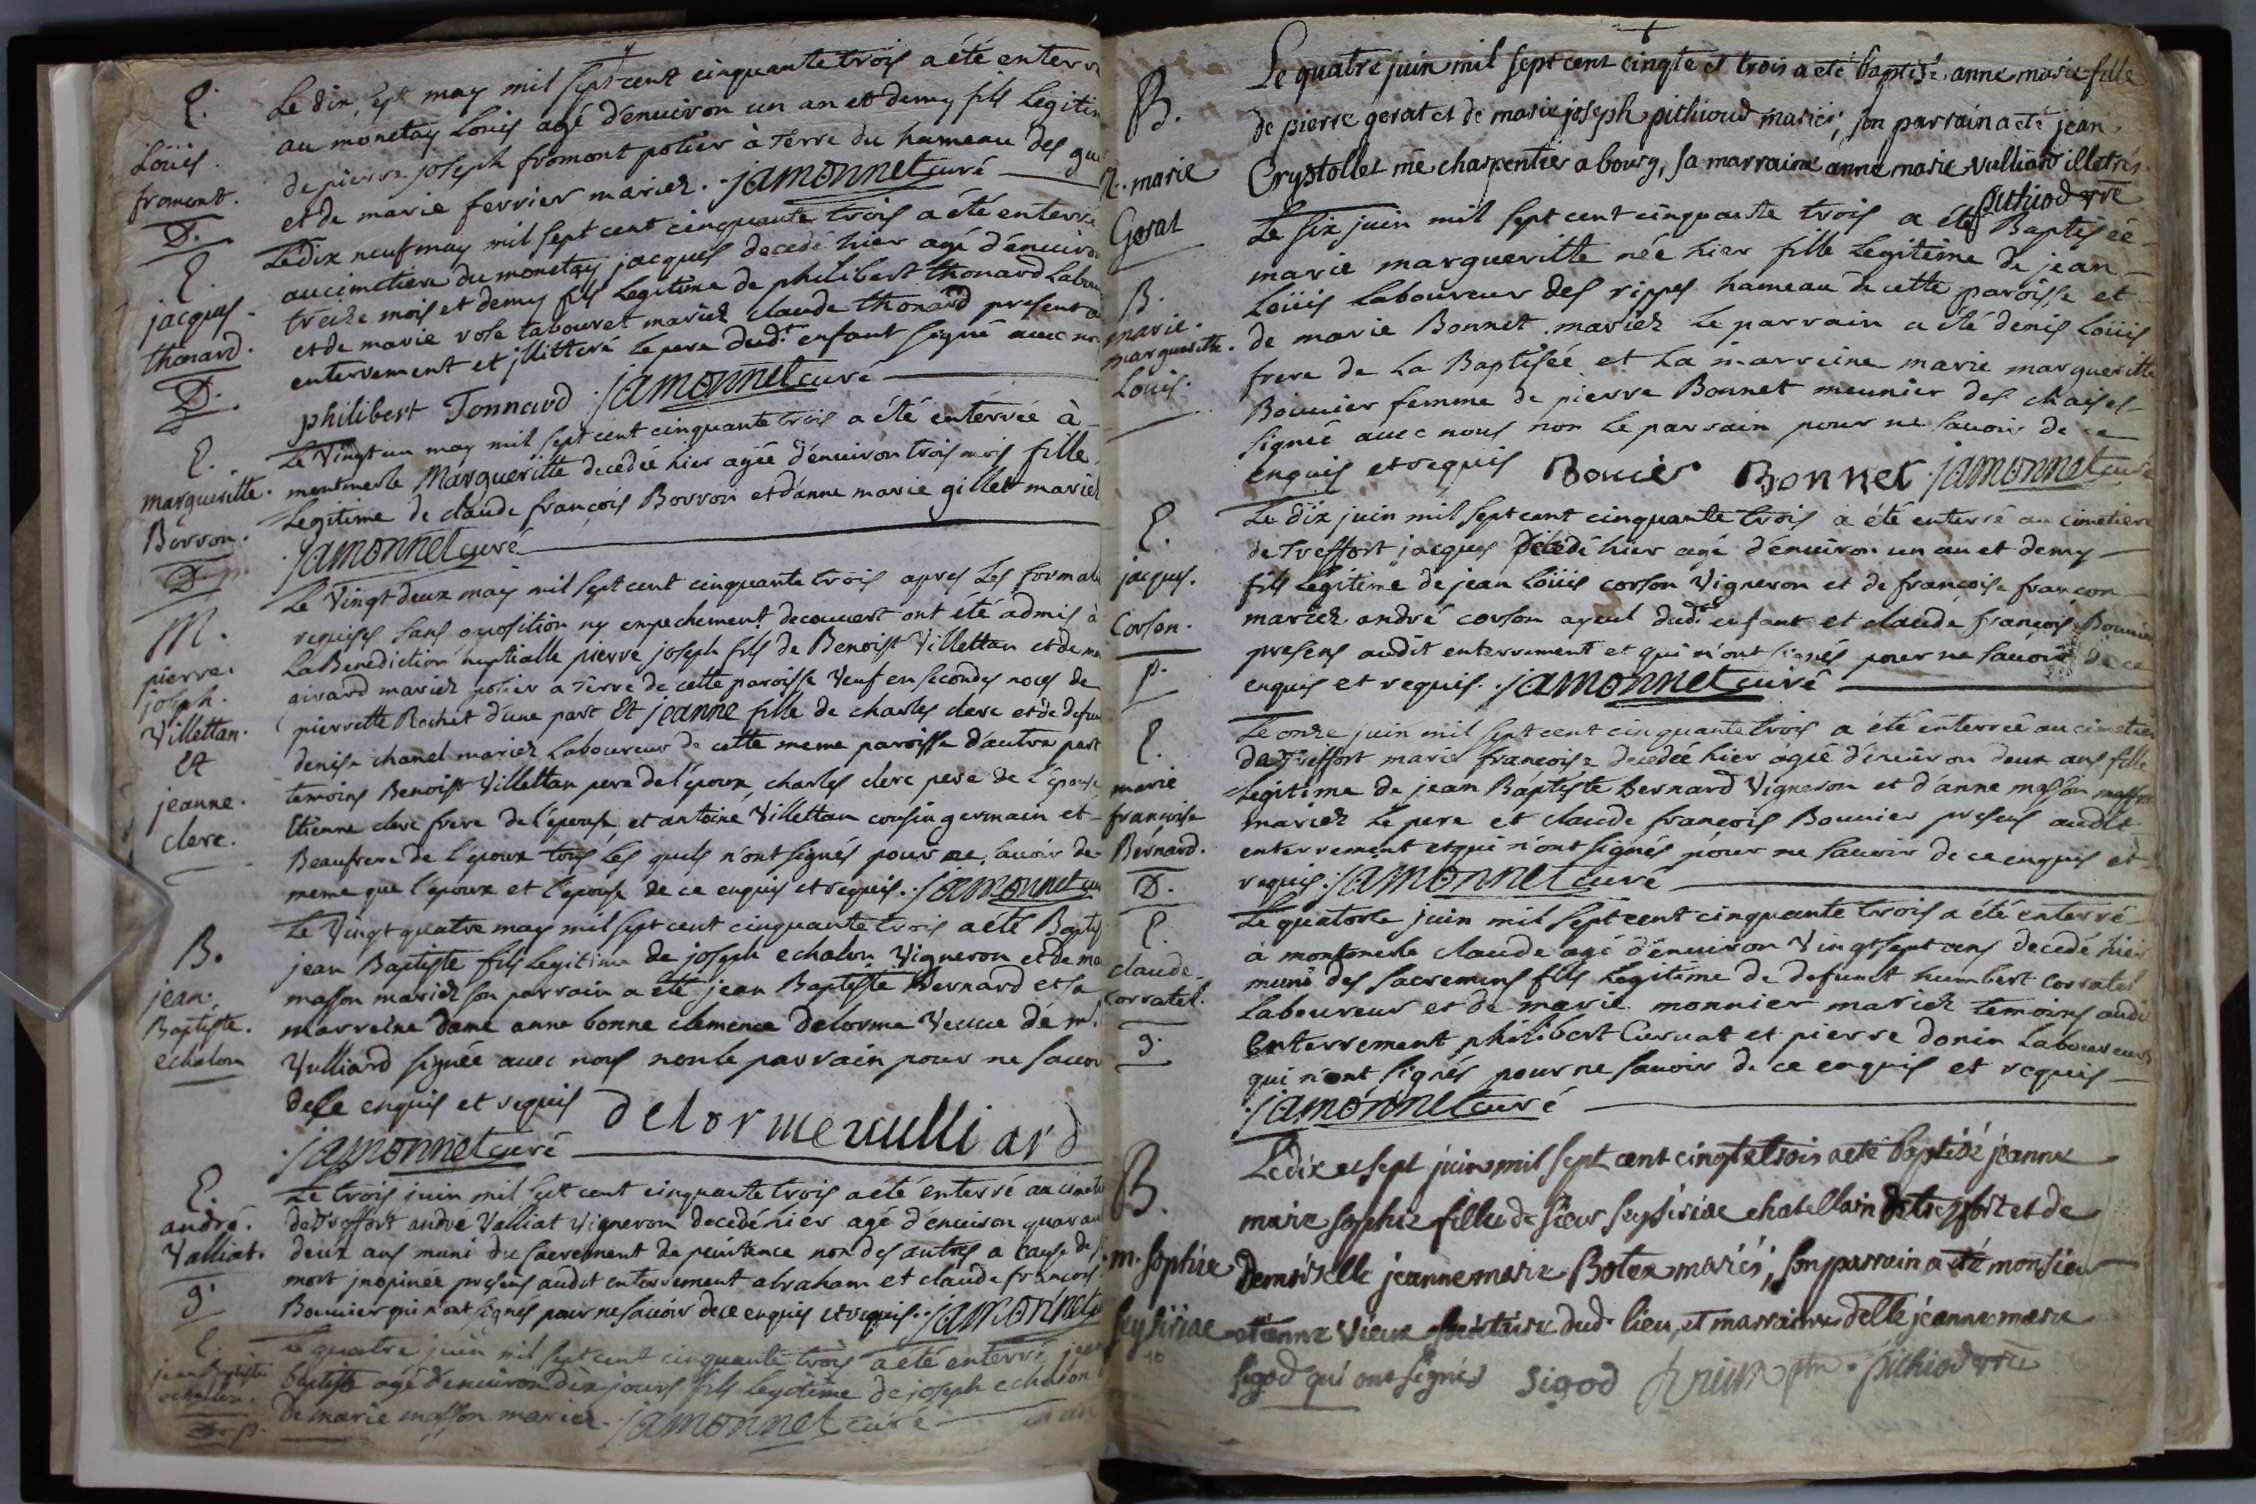 E.
Loüis.
fromont.
D.
Le dix sept may mil sept cent cinquante trois a été enterré
au monetay Louis agé d'enuiron un an et demy fils Legitim
de pierre joseph fromont potier à terre du hameau des gu
et de marie ferrier mariez. jamonnet curé
E.
jacques.
thonard.
D.
Le dix neuf may mil sept cent cinquante trois a été enterré
au cimetiere du monetay jacques decedé hier agé d'enuiron
treize mois et demy fils Legitime de philibert thonard Labou
et de marie rose tabouret mariez claude thonard present a
enterrement et jllitteré le pere dudt. enfant signé auec no
philibert Tonnard jamonnet curé
E.
margueritte.
Borron.
D.
Le Vingt un may mil sept cent cinquante trois a été enterrée à
montmerle Margueritte decedée hier agée d'enuiron trois mois fille
Legitime de claude françois Borron et d'anne marie gillet mariez
jamonnet curé
M.
pierre.
joseph.
Villettan.
Et
jeanne.
clerc.
Le Vingt deux may mil sept cent cinquante trois apres les formal
requises sans oposition ny empechement decouuert ont été admis à
La Benediction nuptialle pierre joseph fils de Benoist Villettan et de ma
girard mariez potier a terre de cette paroisse Veuf en secondes noces de
pierrette Rochet d'une part Et jeanne fille de charles clerc et de defun
denise chanel mariez Laboureur de cette meme paroisse d'autre part
temoins Benoist Villettan pere de l'époux, charles clerc pere de l'épouse
Etienne clerc frere de l'épouse et antoine Villettan cousin germain et
Beaufrere de l'époux tous les quels n'ont signés pour ne sauoir de
meme que l'époux et l'epouse de ce enquis et requis. jamonnet cu
B.
jean.
Baptiste.
echalon
Le Vingt quatre may mil sept cent cinquante trois a été Baptis
jean Baptiste fils Legitime de joseph echalon Vigneron et de ma
masson mariez son parrain a été jean Baptiste Bernard et sa
marreine dame anne bonne clemence Delorme Veuue de mr.
Vulliard signée auec nous non le parrain pour ne sauoir
de ce enquis et requis delorme vulliard
jamonnet curé
E.
andré.
Valliat.
g.
Le trois juin mil sept cent cinquante trois a été enterré au cimeti
de Treffort andré Valliat Vigneron decedé hier agé d'enuiron quaran
deux ans muni du sacrement de penitence non des autres a cause de
mort jnopinée presens audit enterrement abraham et claude françois
Bouuier qui n'ont signés pour ne sauoir de ce enquis et requis. jamonnet
E.
jean Baptiste
echalon.
D. p.
Le quatre juin mil sept cent cinquante trois a été enterré jean
baptiste agé d'enuiron dix jours fils legitime de joseph echalon
de marie masson mariez. jamonnet curé
B.
a. marie
Gerat
Le quatre juin mil sept cent cinqte et trois a eté baptisé anne marie fille
de pierre gerat et de marie joseph pithioud mariés, son parrain a eté jean
Crystollet me charpentier a bourg, sa marraine anne marie vulliard illetrés.
pithiod vre
B.
marie.
margueritte.
Louis.
Le six juin mil sept cent cinquante trois a été Baptisée
marie margueritte née hier fille Legitime de jean
Loüis Laboureur des rippes hameau de cette paroisse et
de marie Bonnet mariez Le parrain a été denis Loüis
frere de La Baptisée et La marreine marie margueritte
Bouuier femme de pierre Bonnet meunier des chaises
signée auec nous non Le parrain pour ne sauoir de ce
enquis et requis Bouier Bonnet jamonnet curé
E.
jacques.
Corson.
p.
Le dix juin mil sept cent cinquante trois a été enterré au cimetiere
de treffort jacques decedé hier agé d'enuiron un an et demy
fils Legitime de jean Loüis corson Vigneron et de françoise françon
mariez andré corson ayeul dudt. enfant et claude françois Bouuier
presens audit enterrement et qui n'ont signés pour ne sauoir de ce
enquis et requis. jamonnet curé
E.
marie
françoise
Bérnard.
D.
Le onze juin mil sept cent cinquante trois a été enterrée au cimetier
de Treffort marie françoise decedée hier agée d'enuiron deux ans fille
Legitime de jean Baptiste Bernard Vigneron et d'anne masson
mariez Le pere et claude françois Bouuier presens audit
enterrement et qui n'ont signés pour ne sauoir de ce enquis et
requis. jamonnet curé
E.
claude.
corratel.
g.
Le quatorze juin mil sept cent cinquante trois a été enterré
à montmerle claude agé d'enuiron Vingt sept ans decedé hier
muni des sacremens fils Legitime de defunct humbert corratel
Laboureur et de marie monnier mariez temoins audi
enterrement philibert Curuat et pierre donin Laboureurs
qui n'ont signés pour ne sauoir de ce enquis et requis
jamonnet curé
B.
m. sophie
seysiriae
Le dix et sept juin mil sept cent cinqte et trois a eté baptisé jeanne
marie sophie fille de sieur seysiriae chatellain de treffort et de
demoiselle jeanne marie Botex mariés, son parrain a été monsieur
etienne vieux dud. lieu, et marraine delle jeanne marie
sigod qui ont signés sigod pithiod vre